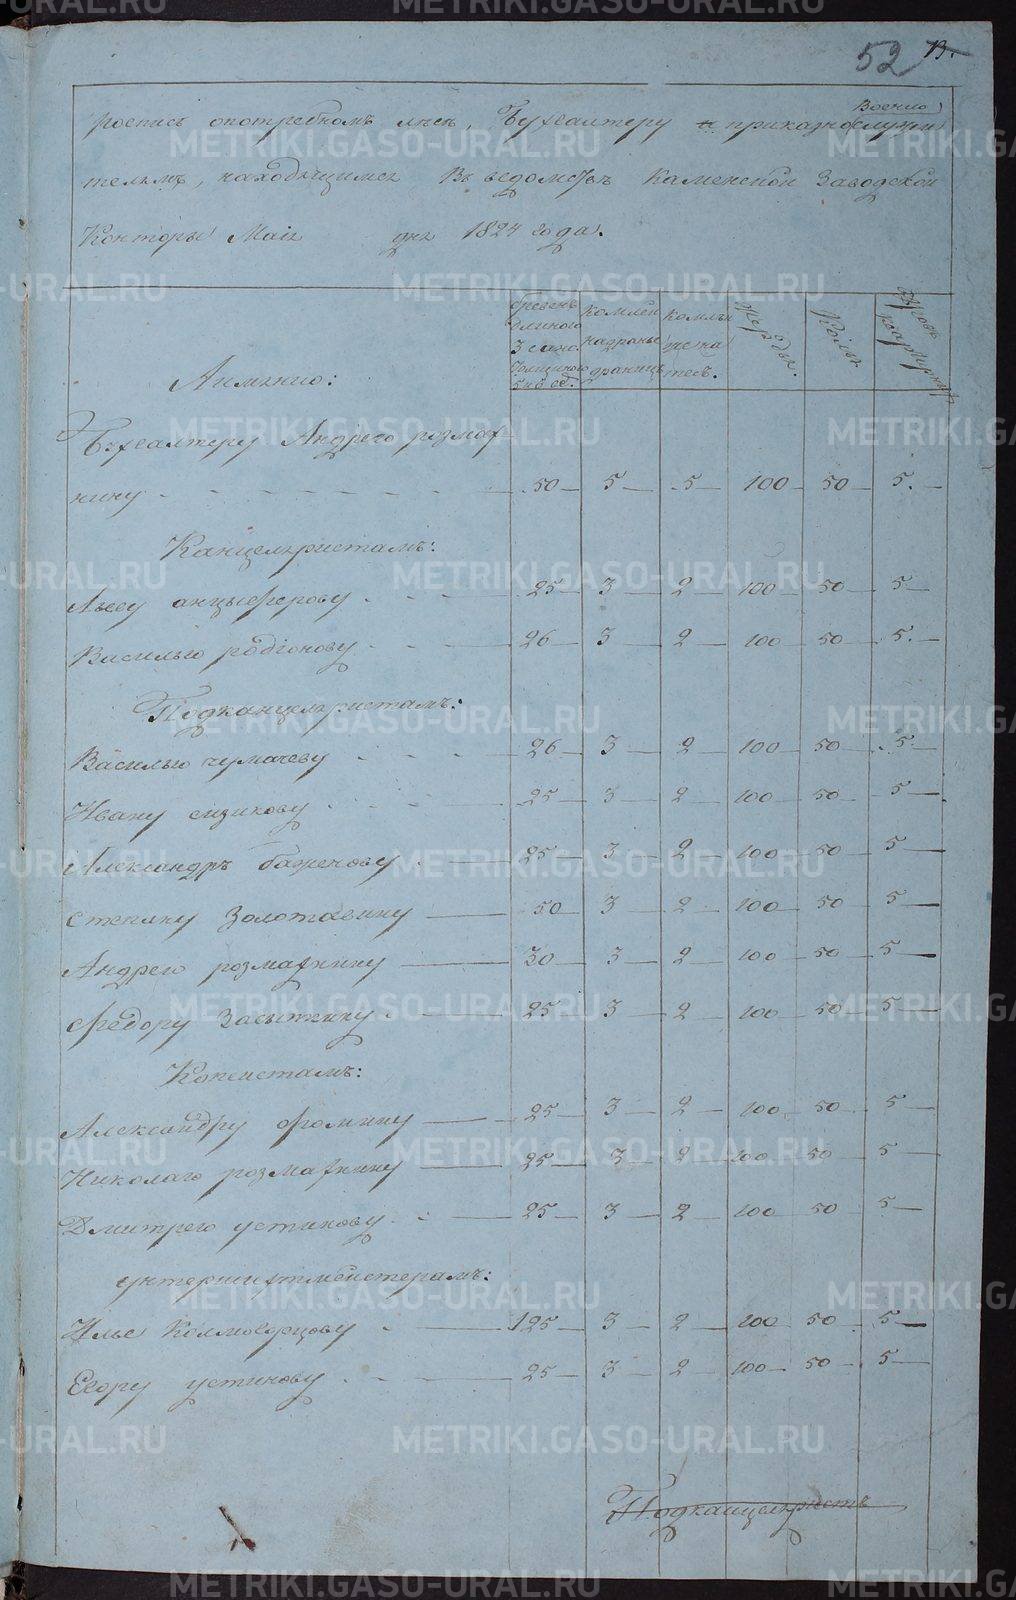 52 13.
роспись опотребномъ лѣсѣ, Бухгалтеру и приказнослужи
Военно
тельмъ, находящимся Въ ведомствѣ Каменской Заводской
Конторы Маія дня 1824 года.
Аимянно:
бревенъ длиною 3 саж. Толщиною 5 и 6 вер.
комлей надранье драницъ
комлей на тесъ.
жердья.
Колья
дровъ квартирных
Бухгалтеру Андрею розмах-
нину 50 5 5 100 50 5.
Канцеляристамъ:
Льву анцыферову 25 3 2 100 50 5
Василью родіонову 26 3 2 100 50 5.
Подканцеляристамъ:
Василью чумачеву 26 3 2 100 50 5
Ивану сизикову 25 3 2 100 50 5
Александръ баженову 25 3 2 100 50 5
степану Золотавину 50 3 2 100 50 5
Андрею розмахнину 30 3 2 100 50 5
Федору Засыпкину 25 3 2 100 50 5
Копеистамъ:
Александру фомину 25 3 2 100 50 5
Николаю розмахнину 25 3 2 100 50 5
Дмитрею устинову 25 3 2 100 50 5
унтершихтмейстерамъ:
Илье Колмогорцову 125 3 2 100 50 5
Егору устинову 25 3 2 100 50 5
Подканцеляристъ
METRIKI.GASO-URAL.RU